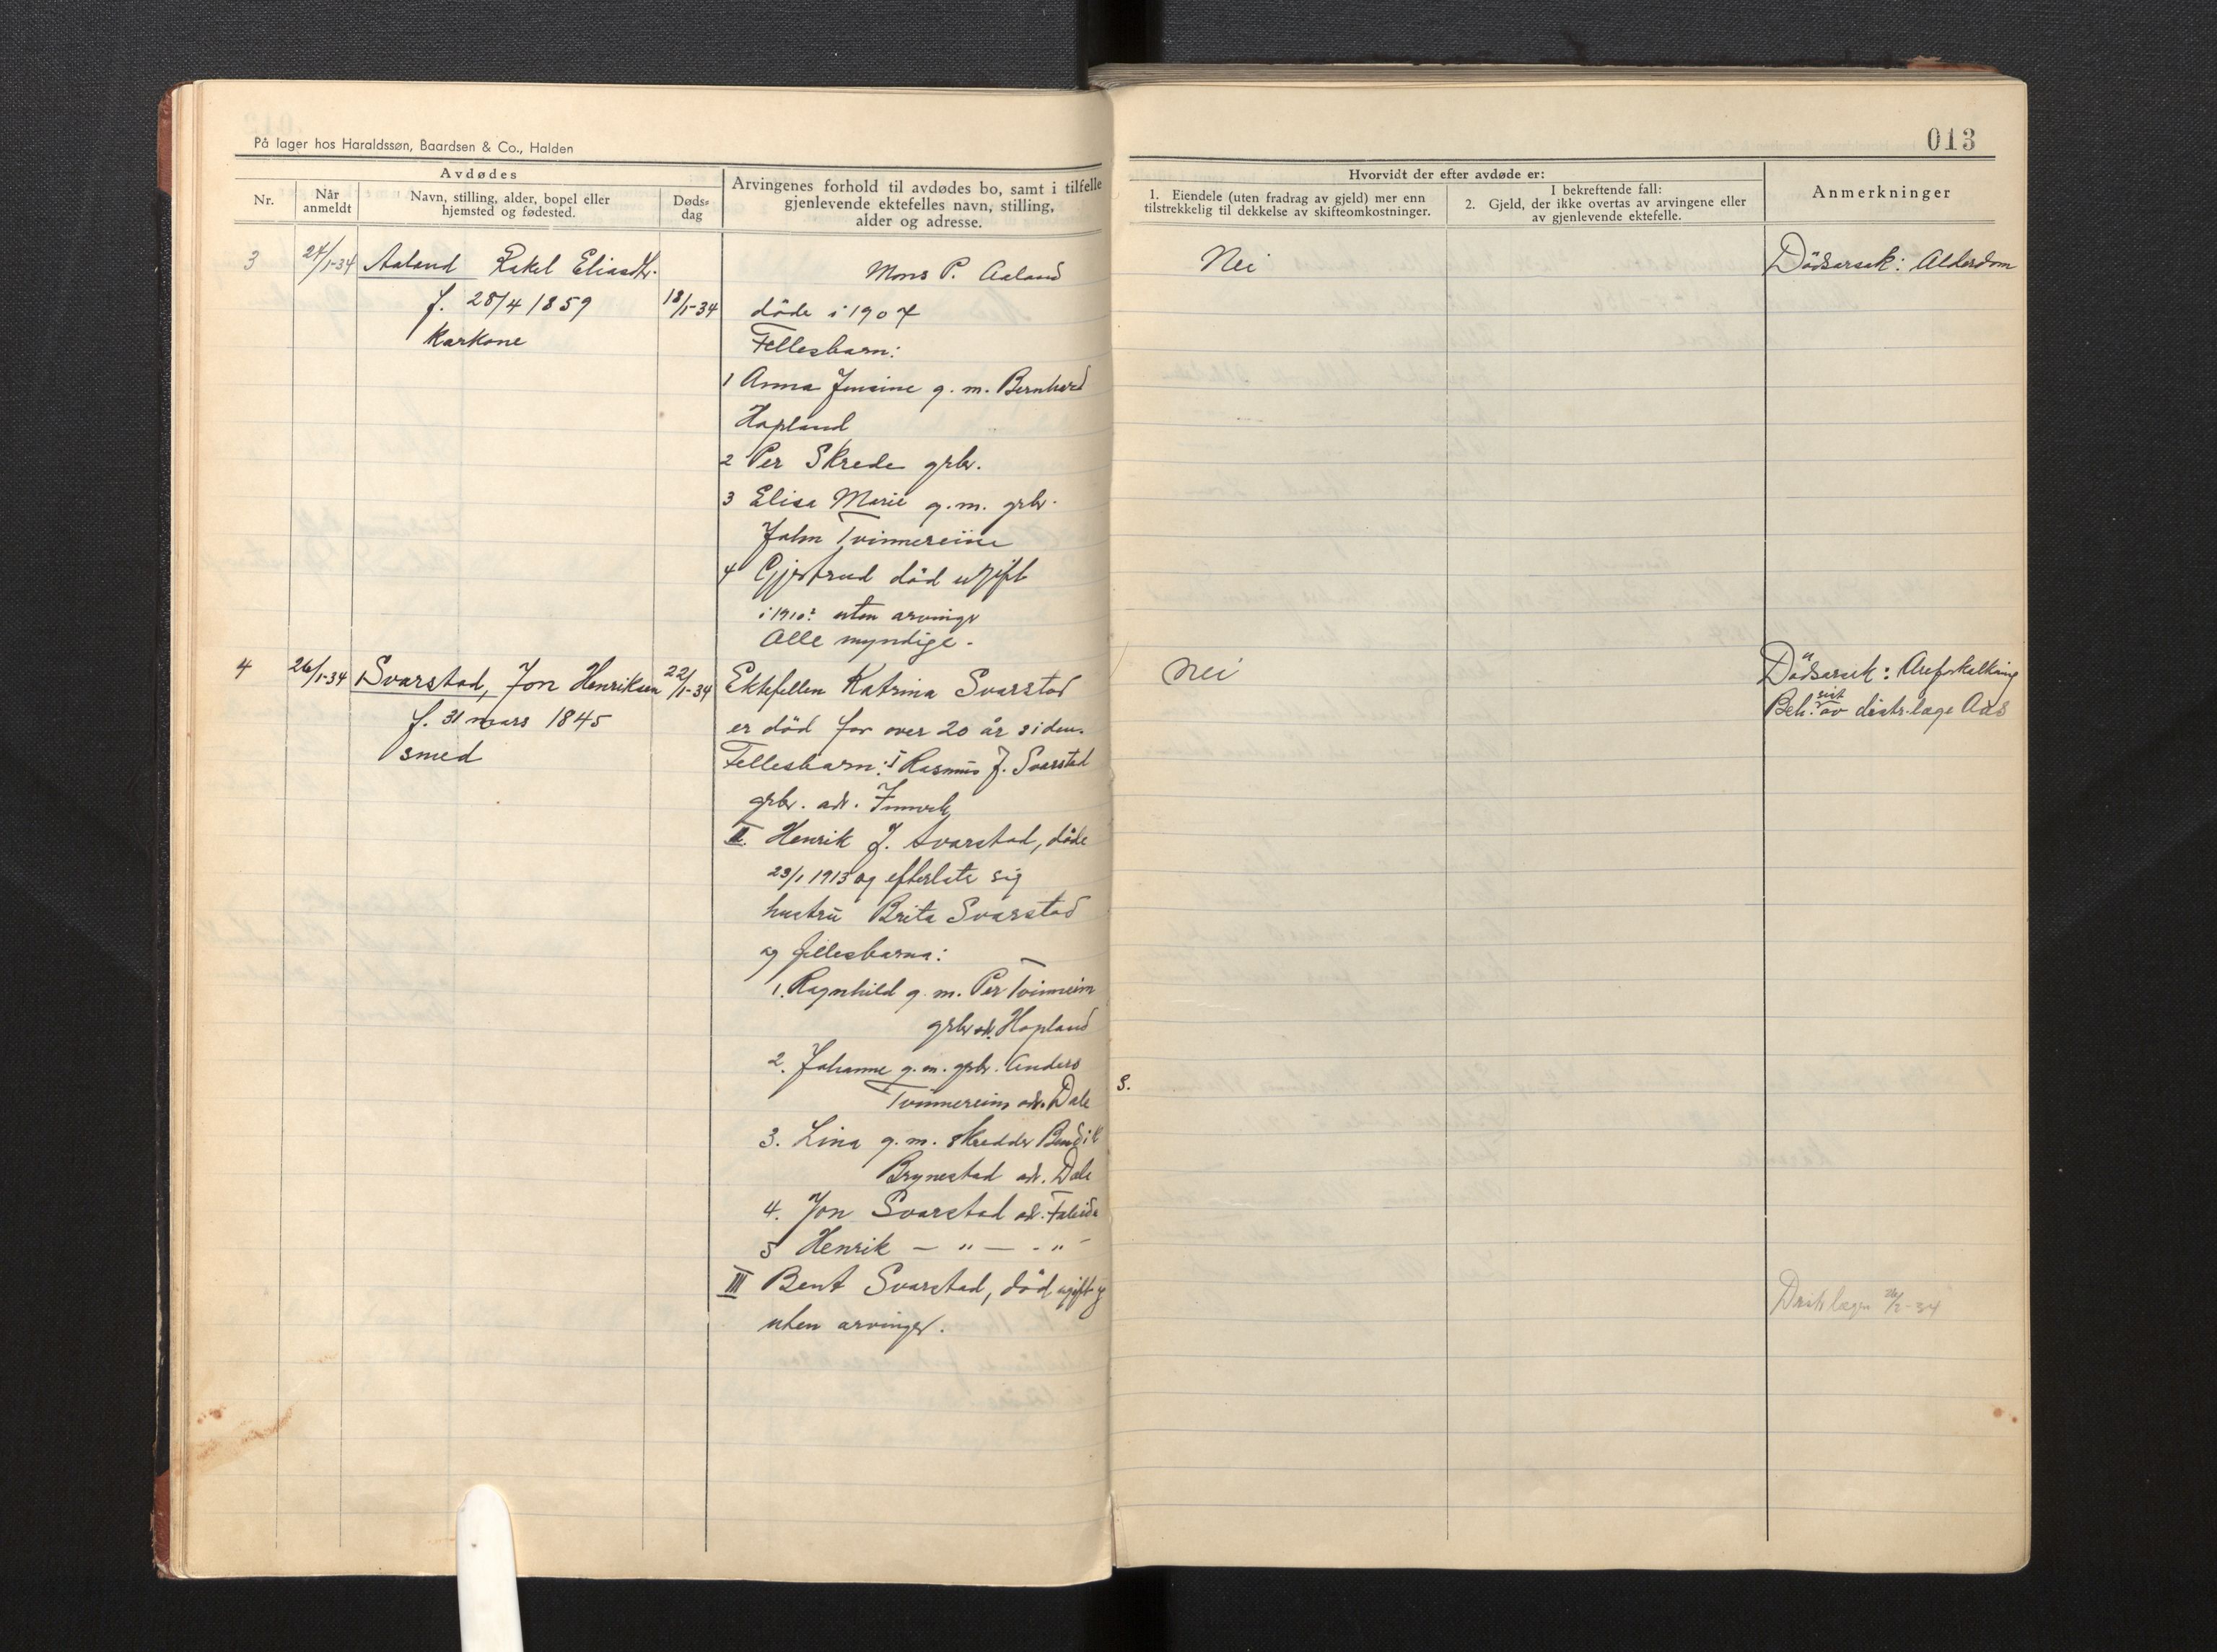 På lager hos Haraldssøn, Baardsen & Co., Halden
Avdødes
Nr.
Når anmeldt
Navn, stilling, alder, bopel eller hjemsted og fødested.
Døds-dag
Arvingenes forhold til avdødes bo, samt i tilfelle
gjenlevende ektefelles navn, stilling,
alder og adresse.
3 24/1-34 Aaland Rakel Eliasdtr.
f. 28/4 1859 18/1-34
Karkone
Mons P. Aaland
døde i 1907
Fellesbarn:
1 Anna Jensine g. m. Bernhard
Hopland
2 Per Skrede grbr.
3 Elisa Marie g. m. grbr.
John Tvinnereim
4 Gjertrud död ugift
i 1910? uten arvinger
Alle myndige.
4 26/1-34 Svarstad, Jon Henriksen 22/1-34
f. 31 mars 1845
smed
Ektefellen Katrina Svarstad
er död for over 20 år siden.
Fellesbarn: I Rasmus J. Svarstad
grbr. adr. Innvik
II. Henrik J. Svarstad, døde
23/1 1913 og efterlate sig
hustru Brita Svarstad
og fellesbarna:
1. Ragnhild g. m. Per Tvinnereim
grbr adr. Hopland
2. Johanne g. m. grbr. Anders
Tvinnereim adr. Dale
3. Lina g. m. skredder Bendik
Brynestad adr. Dale
4. Jon Svarstad adr. Faleide
5 Henrik — " — - " -
III Bent Svarstad, död ugift og
uten arvinger.
013
Hvorvidt der efter avdøde er:
1. Eiendele (uten fradrag av gjeld) mer enn
tilstrekkelig til dekkelse av skifteomkostninger.
I bekreftende fall:
2. Gjeld, der ikke overtas av arvingene eller
av gjenlevende ektefelle.
Anmerkninger
Nei
Dödsarsak: Alderdom
Nei
Dödsarsak: Areforkalkning
Beh. sist av distr. læge Aas
S.
Distr lægen 26/2-34